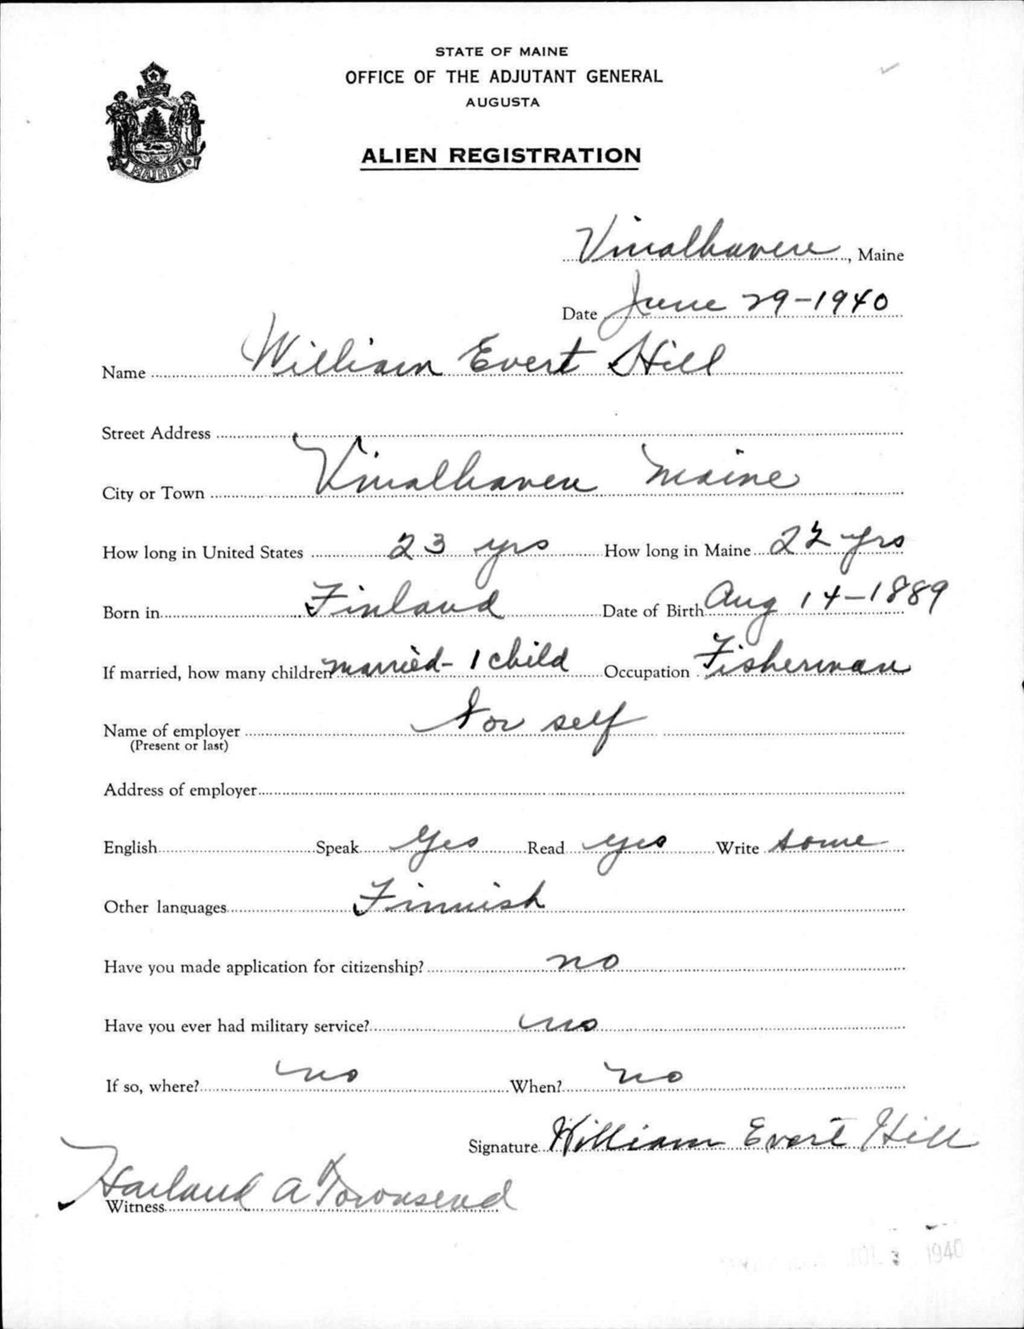 STATE OF MAINE
OFFICE OF THE ADJUTANT GENERAL
AUGUSTA
ALIEN REGISTRATION
MAINE
Vinalhaven, Maine
Date June 29-1940
Name William Evert Hill
Street Address
City or Town Vinalhaven Maine
How long in United States 23 yrs How long in Maine 22 yrs
Born in Finland Date of Birth Aug 14-1889
If married, how many children married- 1 child Occupation Fisherman
Name of employer for self
(Present or last)
Address of employer
English Speak Yes Read yes Write some
Other languages Finnish
Have you made application for citizenship? no
Have you ever had military service? no
If so, where? no When? no
Signature William Evert Hill
Witness Harland A Townsend
1940